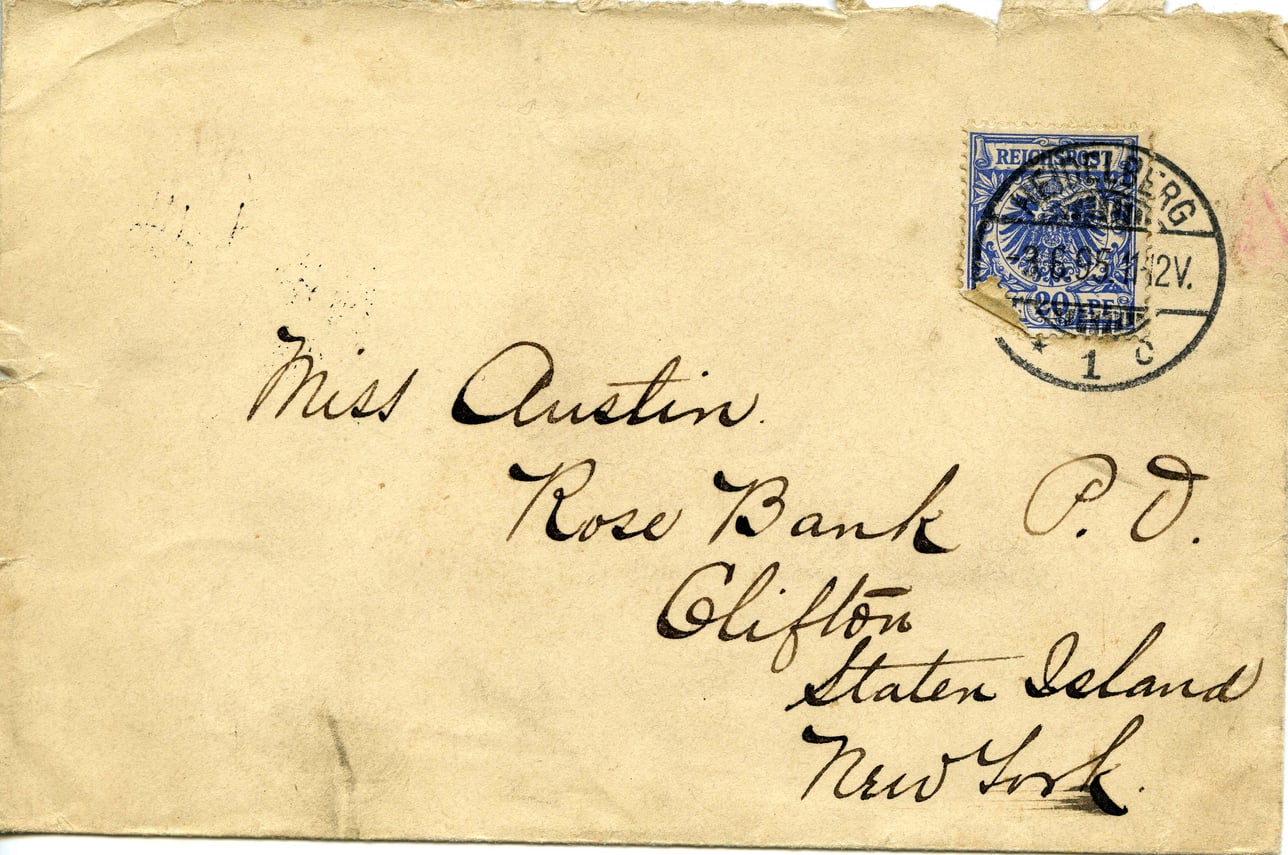 REICHSPOST
HEIDELBERG
3.6.95.11-12V.
20 PF
* 1 c
Miss Austin.
Rose Bank P. O.
Clifton
Staten Island
New York.